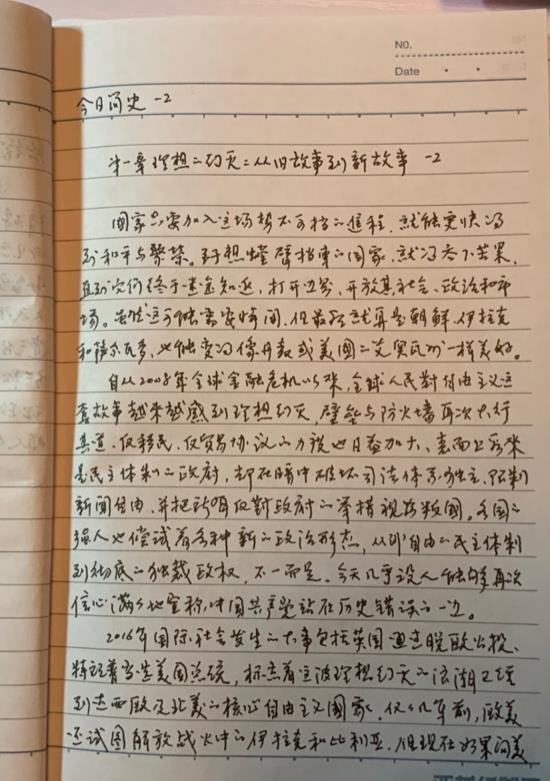 NO.
Date
今日简史 -2
第一章理想的幻灭:从旧故事到新故事 -2
国家只要加入这场势不可挡的进程,就能更快得
到和平与繁荣。至于想螳臂挡車的国家,就得吞下苦果,
直到它们终于迷途知返,打开边界,开放其社会、政治和市
场。虽然这可能需要時间,但最终就算是朝鲜、伊拉克
和萨尔瓦多,也能变得像丹麦或美国的艾奥瓦州一样美好。
自从2008年全球金融危机以来,全球人民對自由主义这
套故事越来越感到理想幻灭,壁垒与防火墙再次大行
其道,反移民、反贸易协议的力道也日益加大,表面上看来
是民主体制的政府,却在暗中破坏司法体系独立,限制
新闻自由,并把所有反對政府的举措視为叛國。各國的
强人也尝试着各种新的政治形态,从非自由的民主体制
到彻底的独裁政权,不一而足。今天几乎没人能够再次
信心满满地宣称,中国共产党站在历史错误的一边。
2016年国际社会发生的大事包括英国通过脱欧公投、
特朗普当选美国总统,标志着这波理想幻灭的浪潮已经
到达西欧及北美的核心自由主义國家。仅仅几年前,欧美
还试图解放战火中的伊拉克和利比亚,但现在如果问美